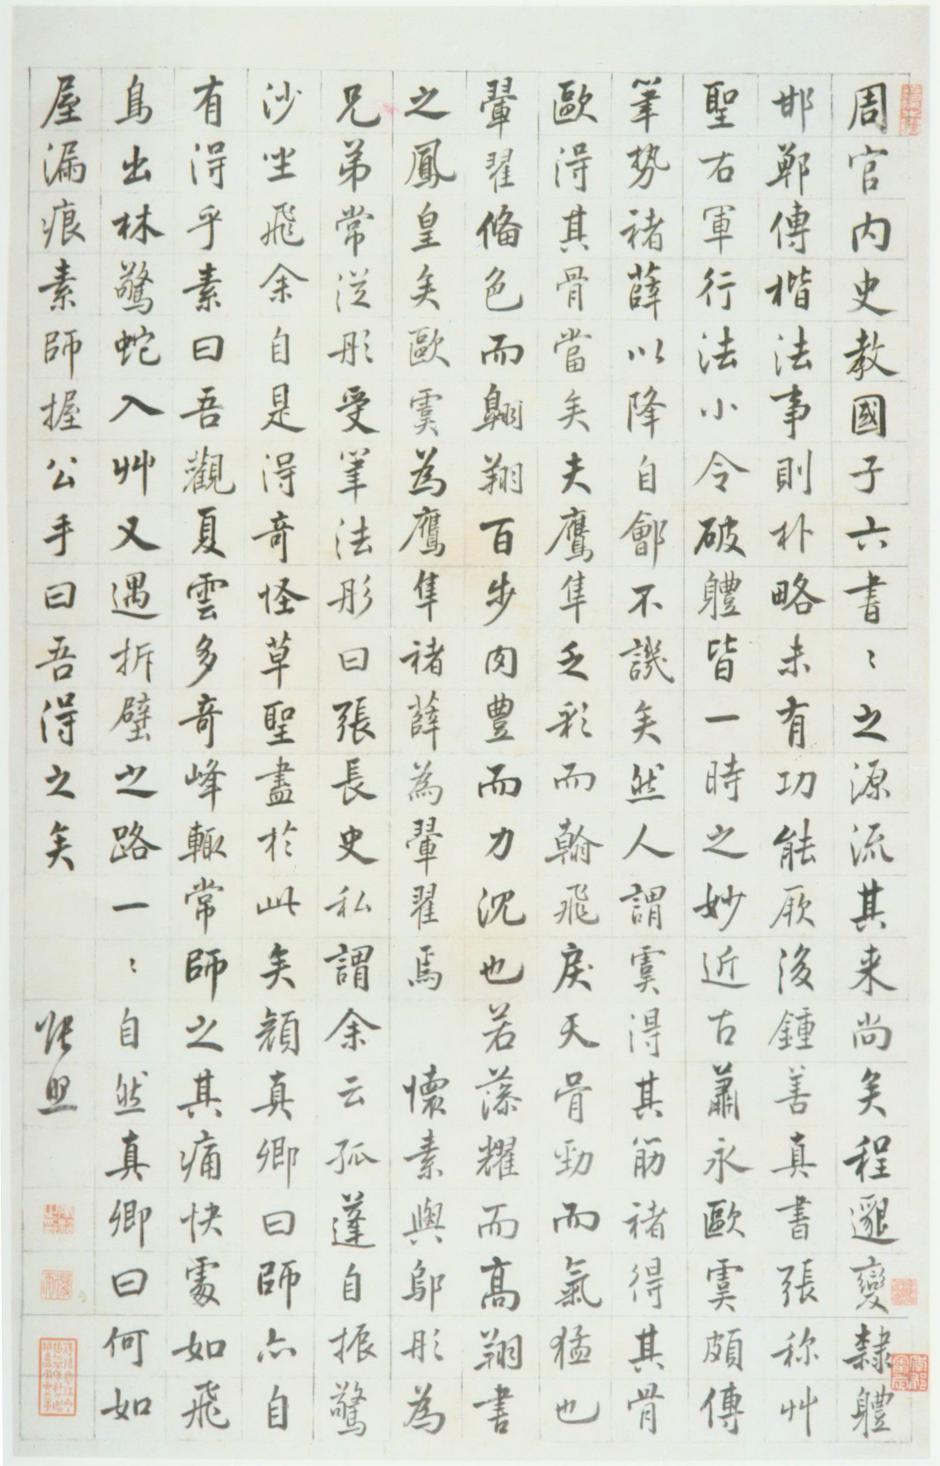 周官内史教國子六書〻之源流其来尚矣程邈變隸軆
邯鄲傳楷法事則朴略未有功能厥後鍾善真書張称艸
聖右軍行法小令破軆皆一時之妙近古蕭永歐虞頗傳
筆勢褚薛以降自鄶不譏矣然人謂虞得其筋褚得其骨
歐得其骨當矣夫鷹隼乏彩而翰飛戾天骨勁而氣猛也
翬翟俻色而翱翔百步肉豊而力沉也若藻耀而高翔書
之鳳皇矣歐虞為鷹隼褚薛為翬翟焉 懷素與鄔彤為
兄弟常從彤受筆法彤曰張長史私謂余云孤蓬自振驚
沙坐飛余自是得奇怪草聖盡於此矣顔真卿曰師亦自
有得乎素曰吾觀夏雲多奇峰輒常師之其痛快處如飛
鳥出林驚蛇入艸又遇拆壁之路一〻自然真卿曰何如
屋漏痕素師握公手曰吾得之矣 張照